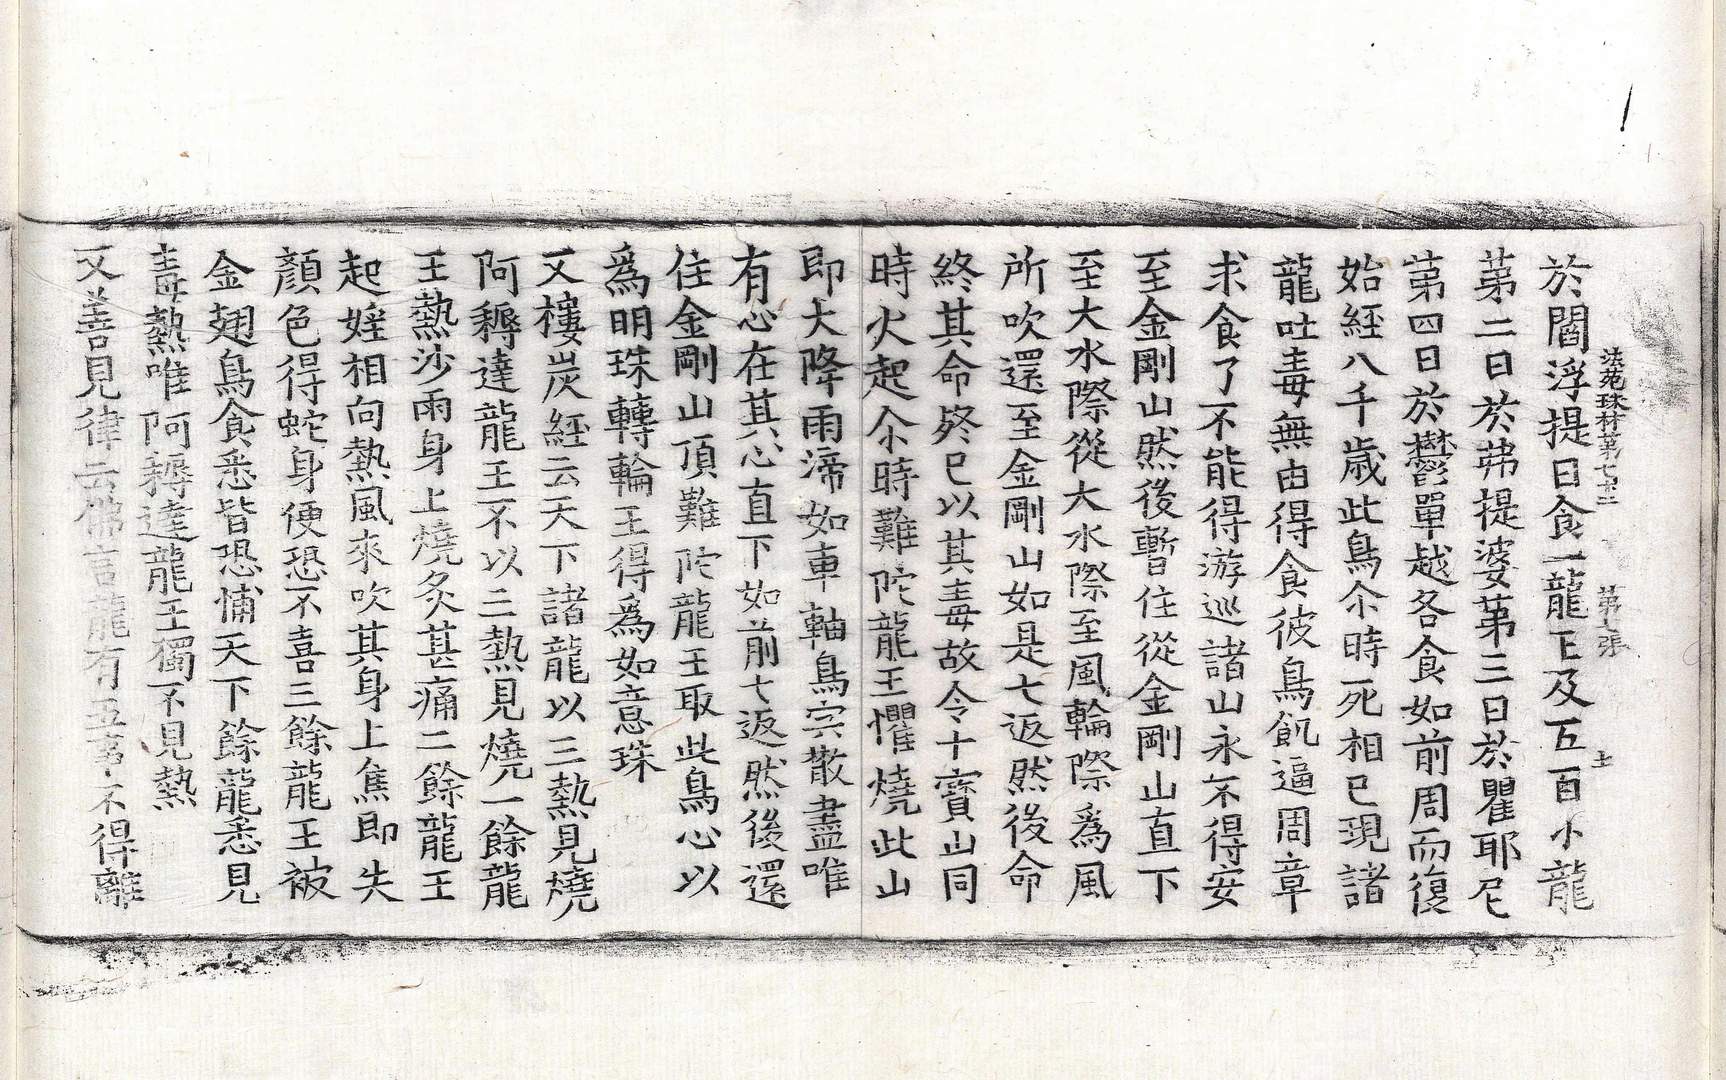 法苑珠林第七十二 第七張 土
於閻浮提日食一龍王及五百小龍
第二日於弗提婆第三日於瞿耶尼
第四日於欝單越各食如前周而復
始經八千歲此鳥尒時死相已現諸
龍吐毒無由得食彼鳥飢逼周章
求食了不能得游巡諸山永不得安
至金剛山然後暫住從金剛山直下
至大水際從大水際至風輪際爲風
所吹還至金剛山如是七返然後命
終其命終已以其毒故令十寶山同
時火起尒時難陀龍王懼燒此山
即大降雨渧如車軸鳥宍散盡唯
有心在其心直下如前七返然後還
住金剛山頂難陀龍王取此鳥心以
爲明珠轉輪王得爲如意珠
又樓炭經云天下諸龍以三熱見燒
阿耨達龍王不以二熱見燒一餘龍
王熱沙雨身上燒炙甚痛二餘龍王
起婬相向熱風來吹其身上焦即失
顏色得蛇身便恐不喜三餘龍王被
金翅鳥食悉皆恐怖天下餘龍悉見
毒熱唯阿耨達龍王獨不見熱
又善見律云佛言龍有五事不得離